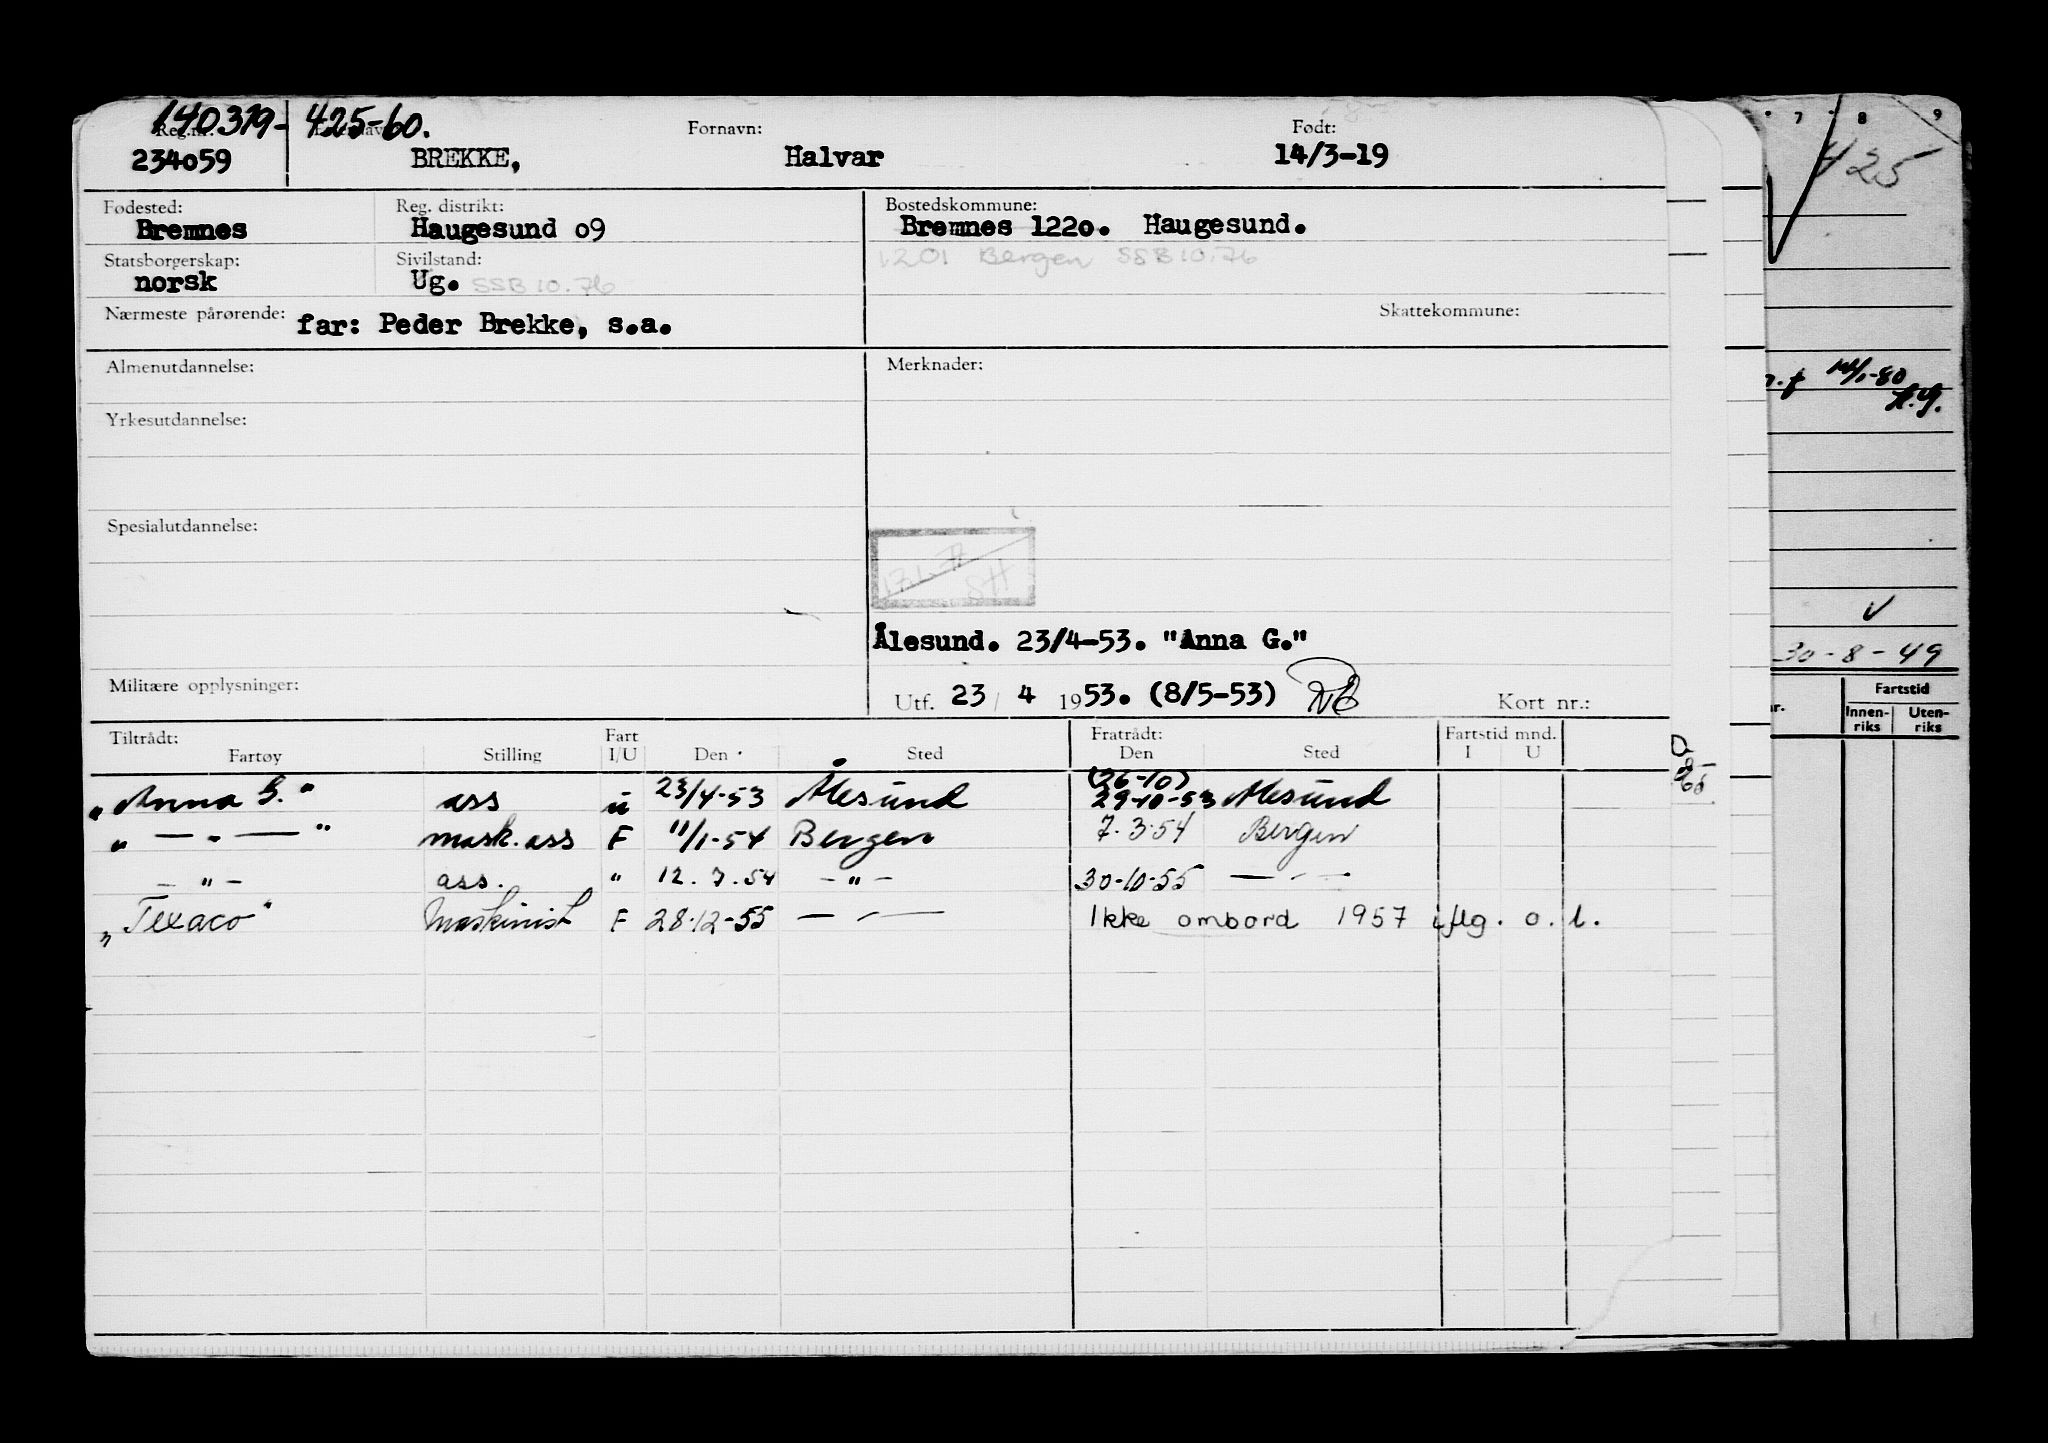 140319-425-60.
Reg.nr. Etternavn: Fornavn: Født:
234059 BREKKE, Halvar 14/3-19
Fødested: Reg. distrikt: Bostedskommune:
Bremnes Haugesund 09 Bremnes 1220. Haugesund.
Statsborgerskap: Sivilstand: 1201 Bergen SSB 10.76
norsk Ug. SSB 10.76
Nærmeste pårørende: far: Peder Brekke, s.a. Skattekommune:
Almenutdannelse: Merknader:
Yrkesutdannelse:
Spesialutdannelse:
17.1.77 SH
Ålesund. 23/4-53. "Anna G."
Militære opplysninger: Utf. 23/ 4 1953. (8/5-53) Kort nr.:
Tiltrådt: Fart Fratrådt: Fartstid mnd.
Fartøy Stilling I/U Den Sted Den Sted I U
(26-10)
"Anna G." ass u 23/4-53 Ålesund 29-10-53 Ålesund
" — " — " mask. ass F 11/1-54 Bergen 7.3.54 Bergen
— " — ass. " 12.7.54 — " — 30-10-55 — " —
"Texaco" Maskinist F 28.12-55 — " — Ikke ombord 1957 iflg. o.l.
7 8 9
425
14/1-80
H.G.
30-8-49
Fartstid
Innen-riks Uten-riks